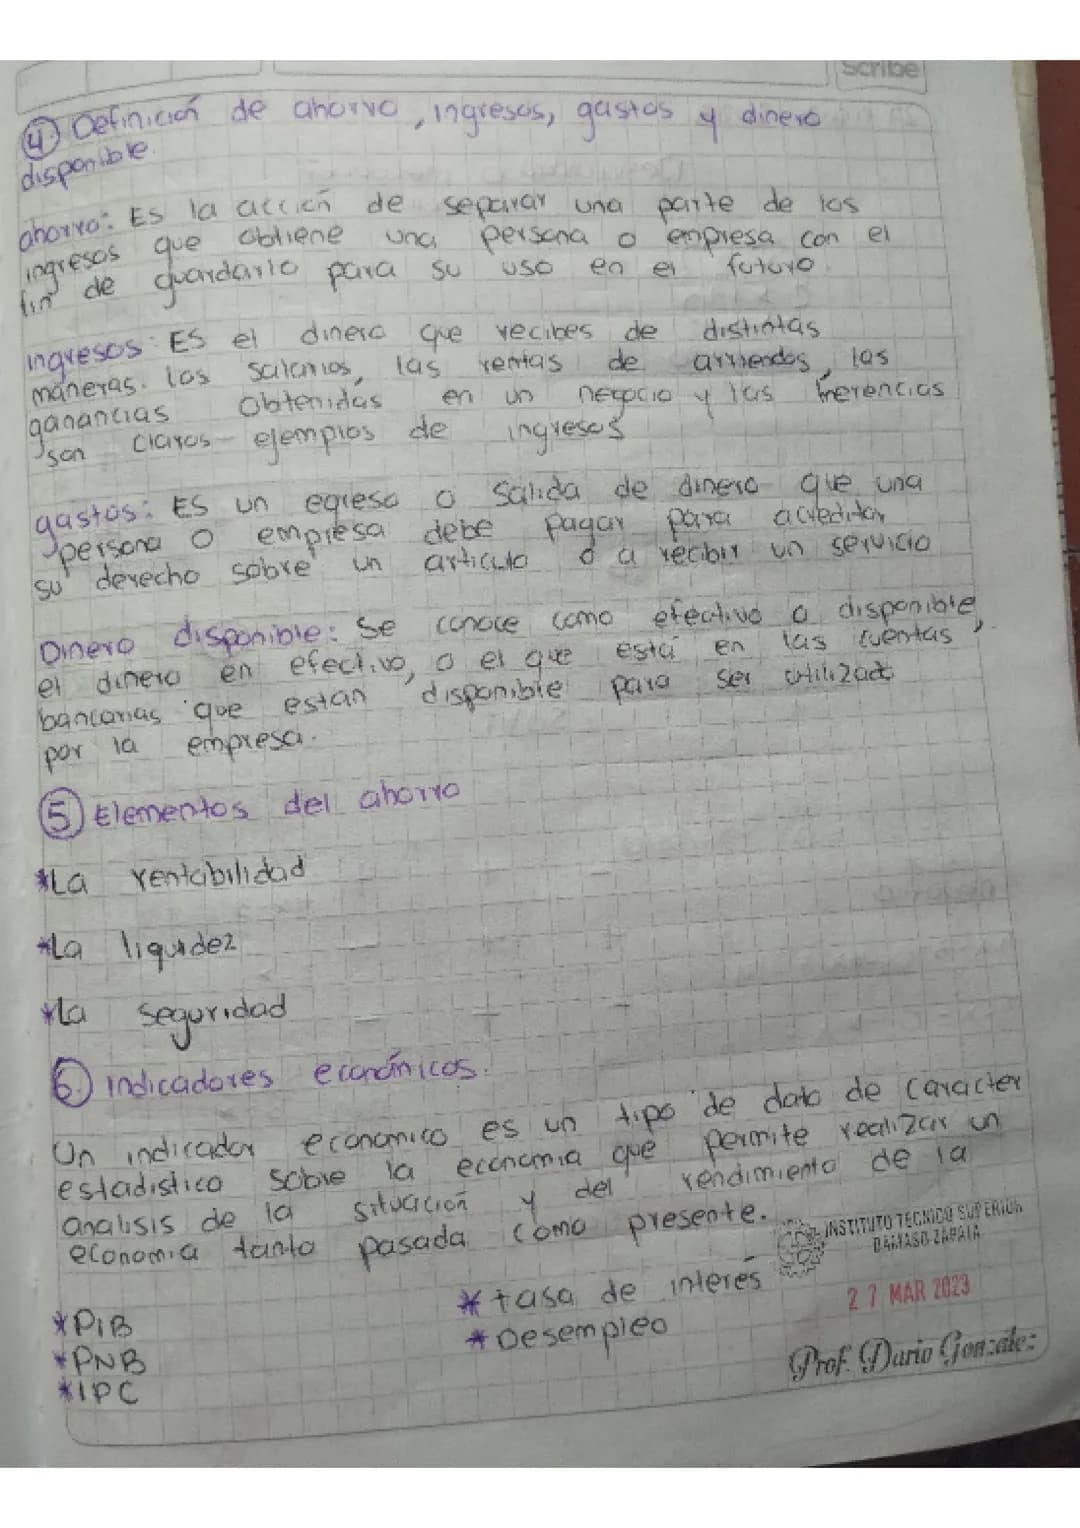 Scribe
④ Definición de ahorro, ingresos, gastos y dinero
disponible.
ahorro: Es la acción de separar una parte de los
ingresos que obtiene una persona o empresa con el
fin de guardarlo para su uso en el futuro.
ingresos: Es el dinero que recibes de distintas
maneras. los salarios, las rentas de arriendos, las
ganancias obtenidas en un negocio y las herencias
son claros ejemplos de ingresos
gastos: Es un egreso o salida de dinero que una
persona o empresa debe pagar para acreditar
su derecho sobre un articulo o a recibir un servicio
Dinero disponible: Se conoce como efectivo o disponible,
el dinero en efectivo, o el que está en las cuentas
bancarias que estan disponible para ser utilizado
por la empresa.
⑤ Elementos del ahorro
*La rentabilidad
*La liquidez
*La seguridad
⑥ indicadores económicos.
Un indicador economico es un tipo de dato de caracter
estadistico sobre la economia que permite realizar un
analisis de la situación y del rendimiento de la
economia tanto pasada como presente.
INSTITUTO TECNICO SUPERIOR
DAMASO ZAPATA
*tasa de interés
27 MAR 2023
*PIB
*Desempleo
*PNB
Prof. Dario Gonzalez
*IPC